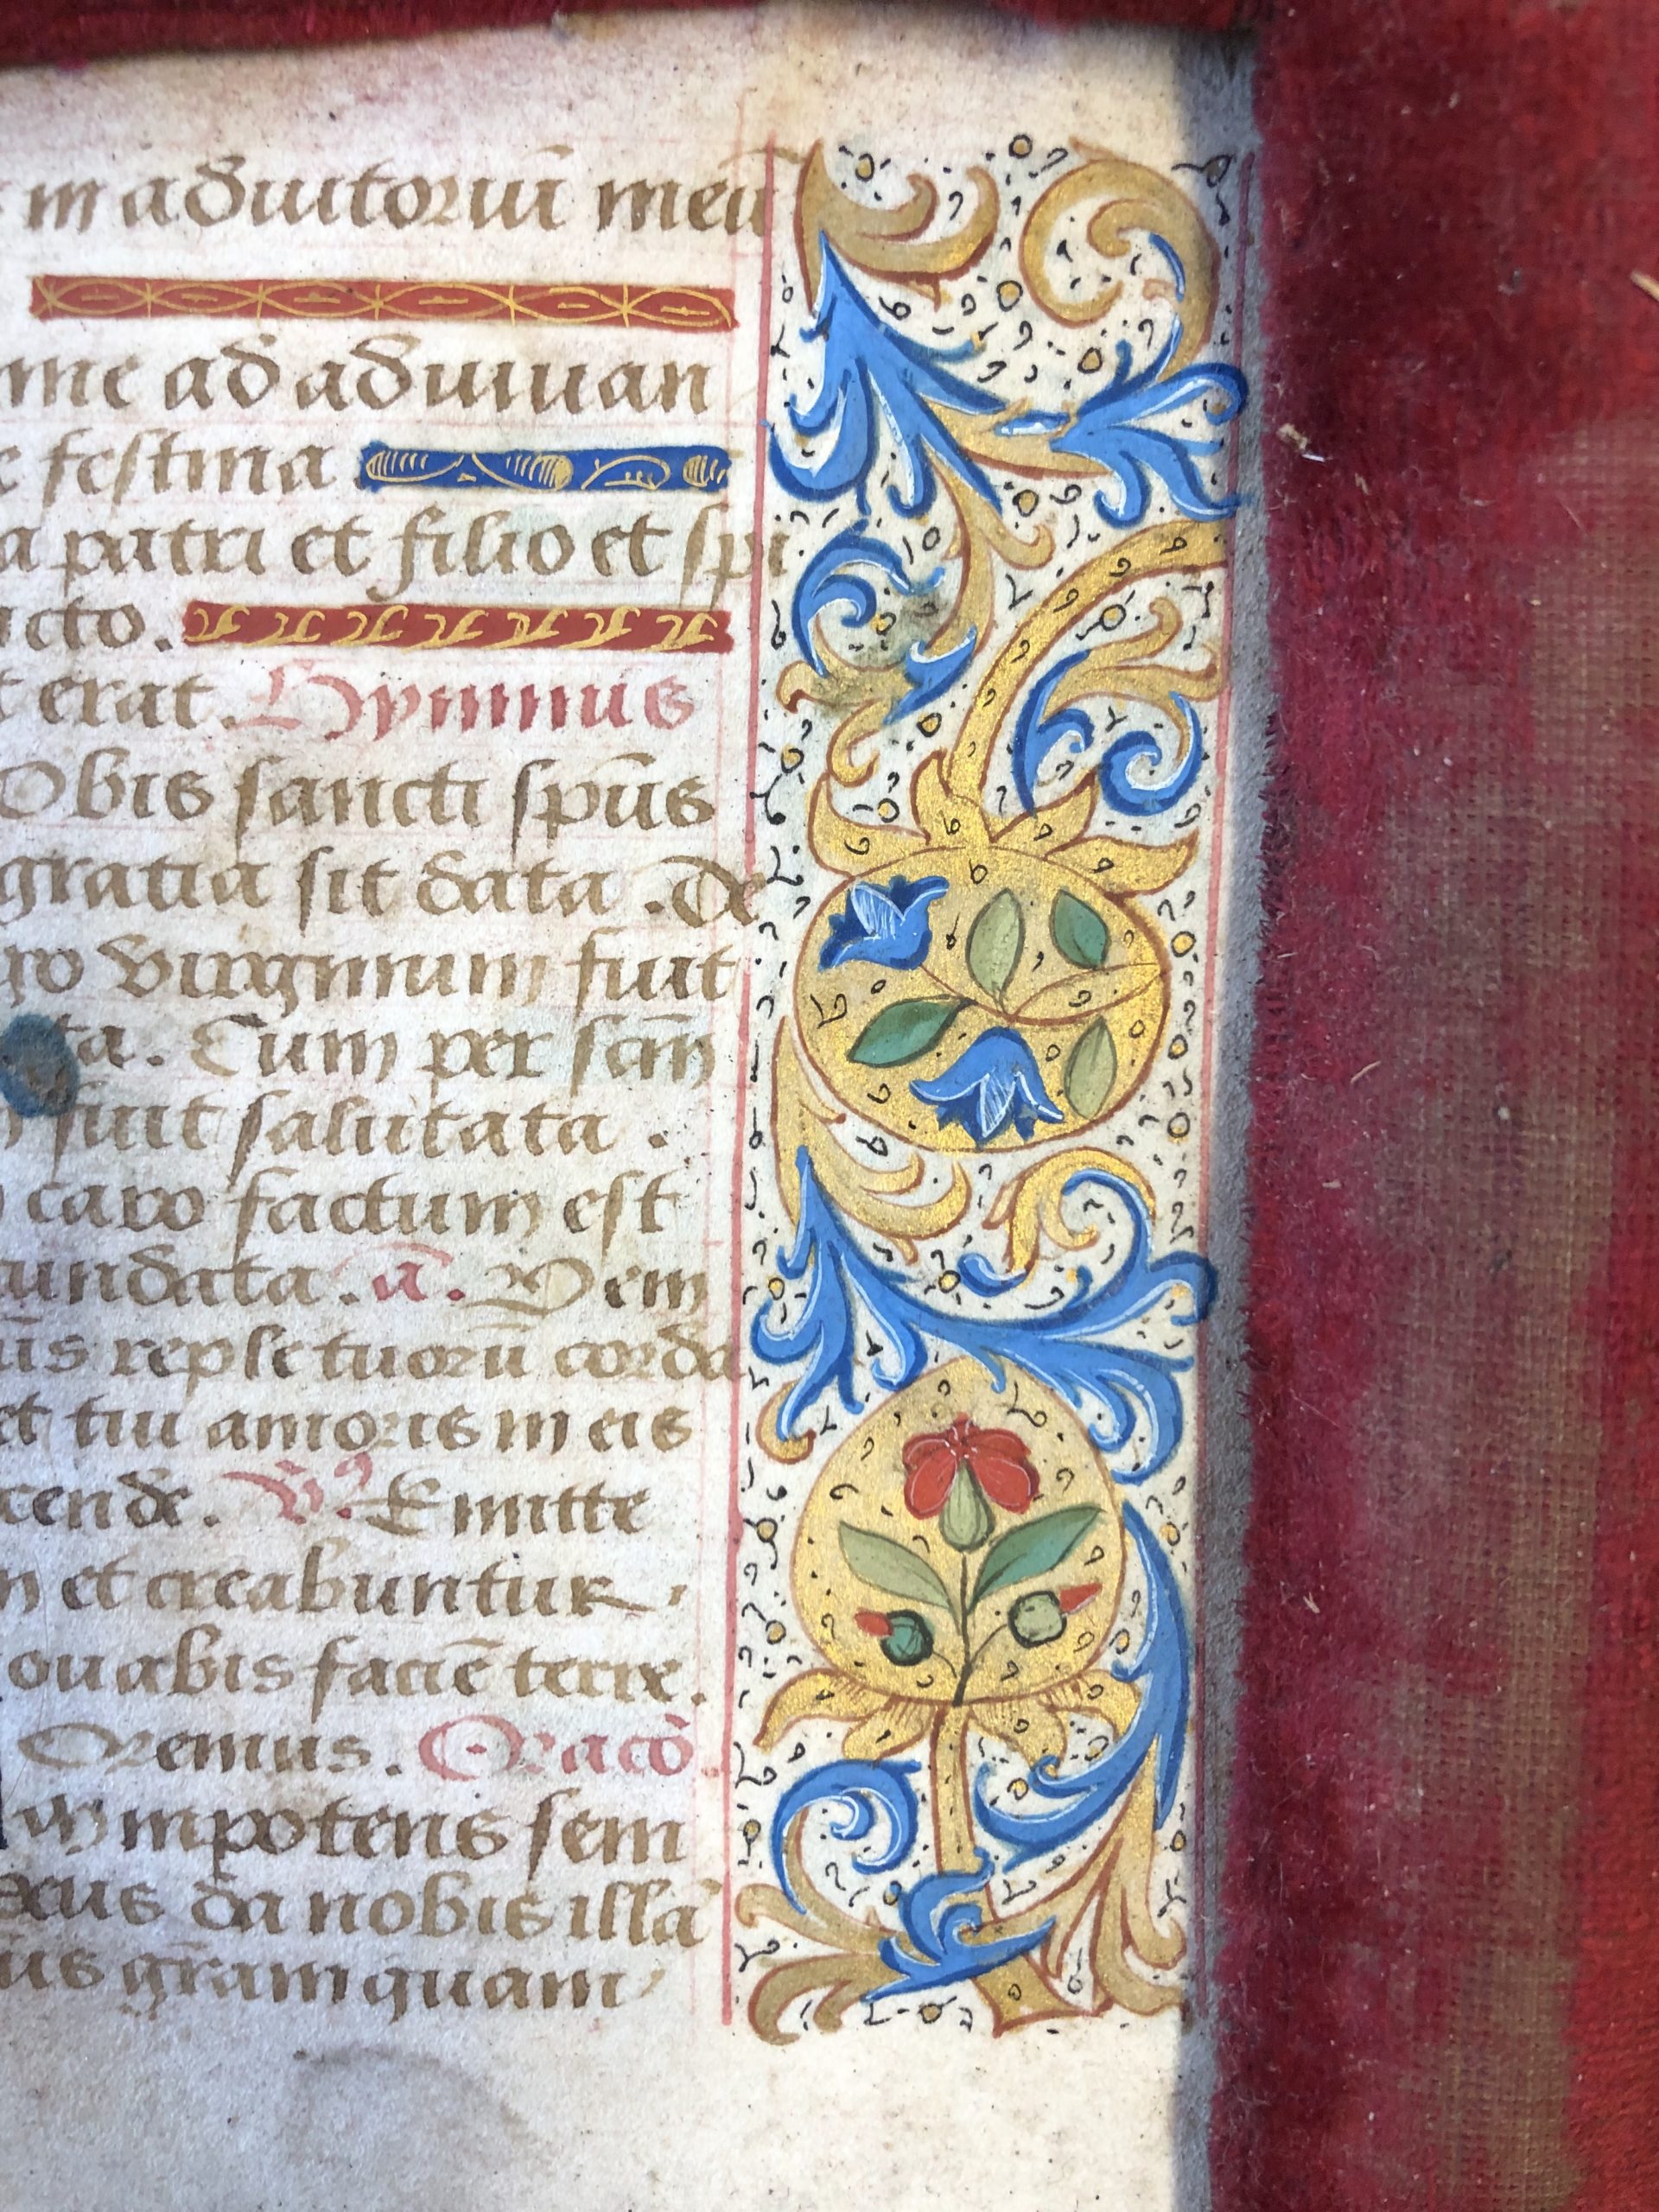 in adiutoriū meū
me ad adiuuan
festina
patri et filio et spi
cto.
erat. Hymnus
Obis sancti sp̄us
gratia sit data. de
go virginum fuit
ta. Cum per sc̄m
fuit salutata.
caro factum est
undata. a. Veni
repletuorū corda
et tui amoris in eis
cende. v̄. Emitte
et creabuntur.
ouabis faciē terre.
Oremus. Oracō.
mnipotens sem
da nobis illā
gr̄am quam